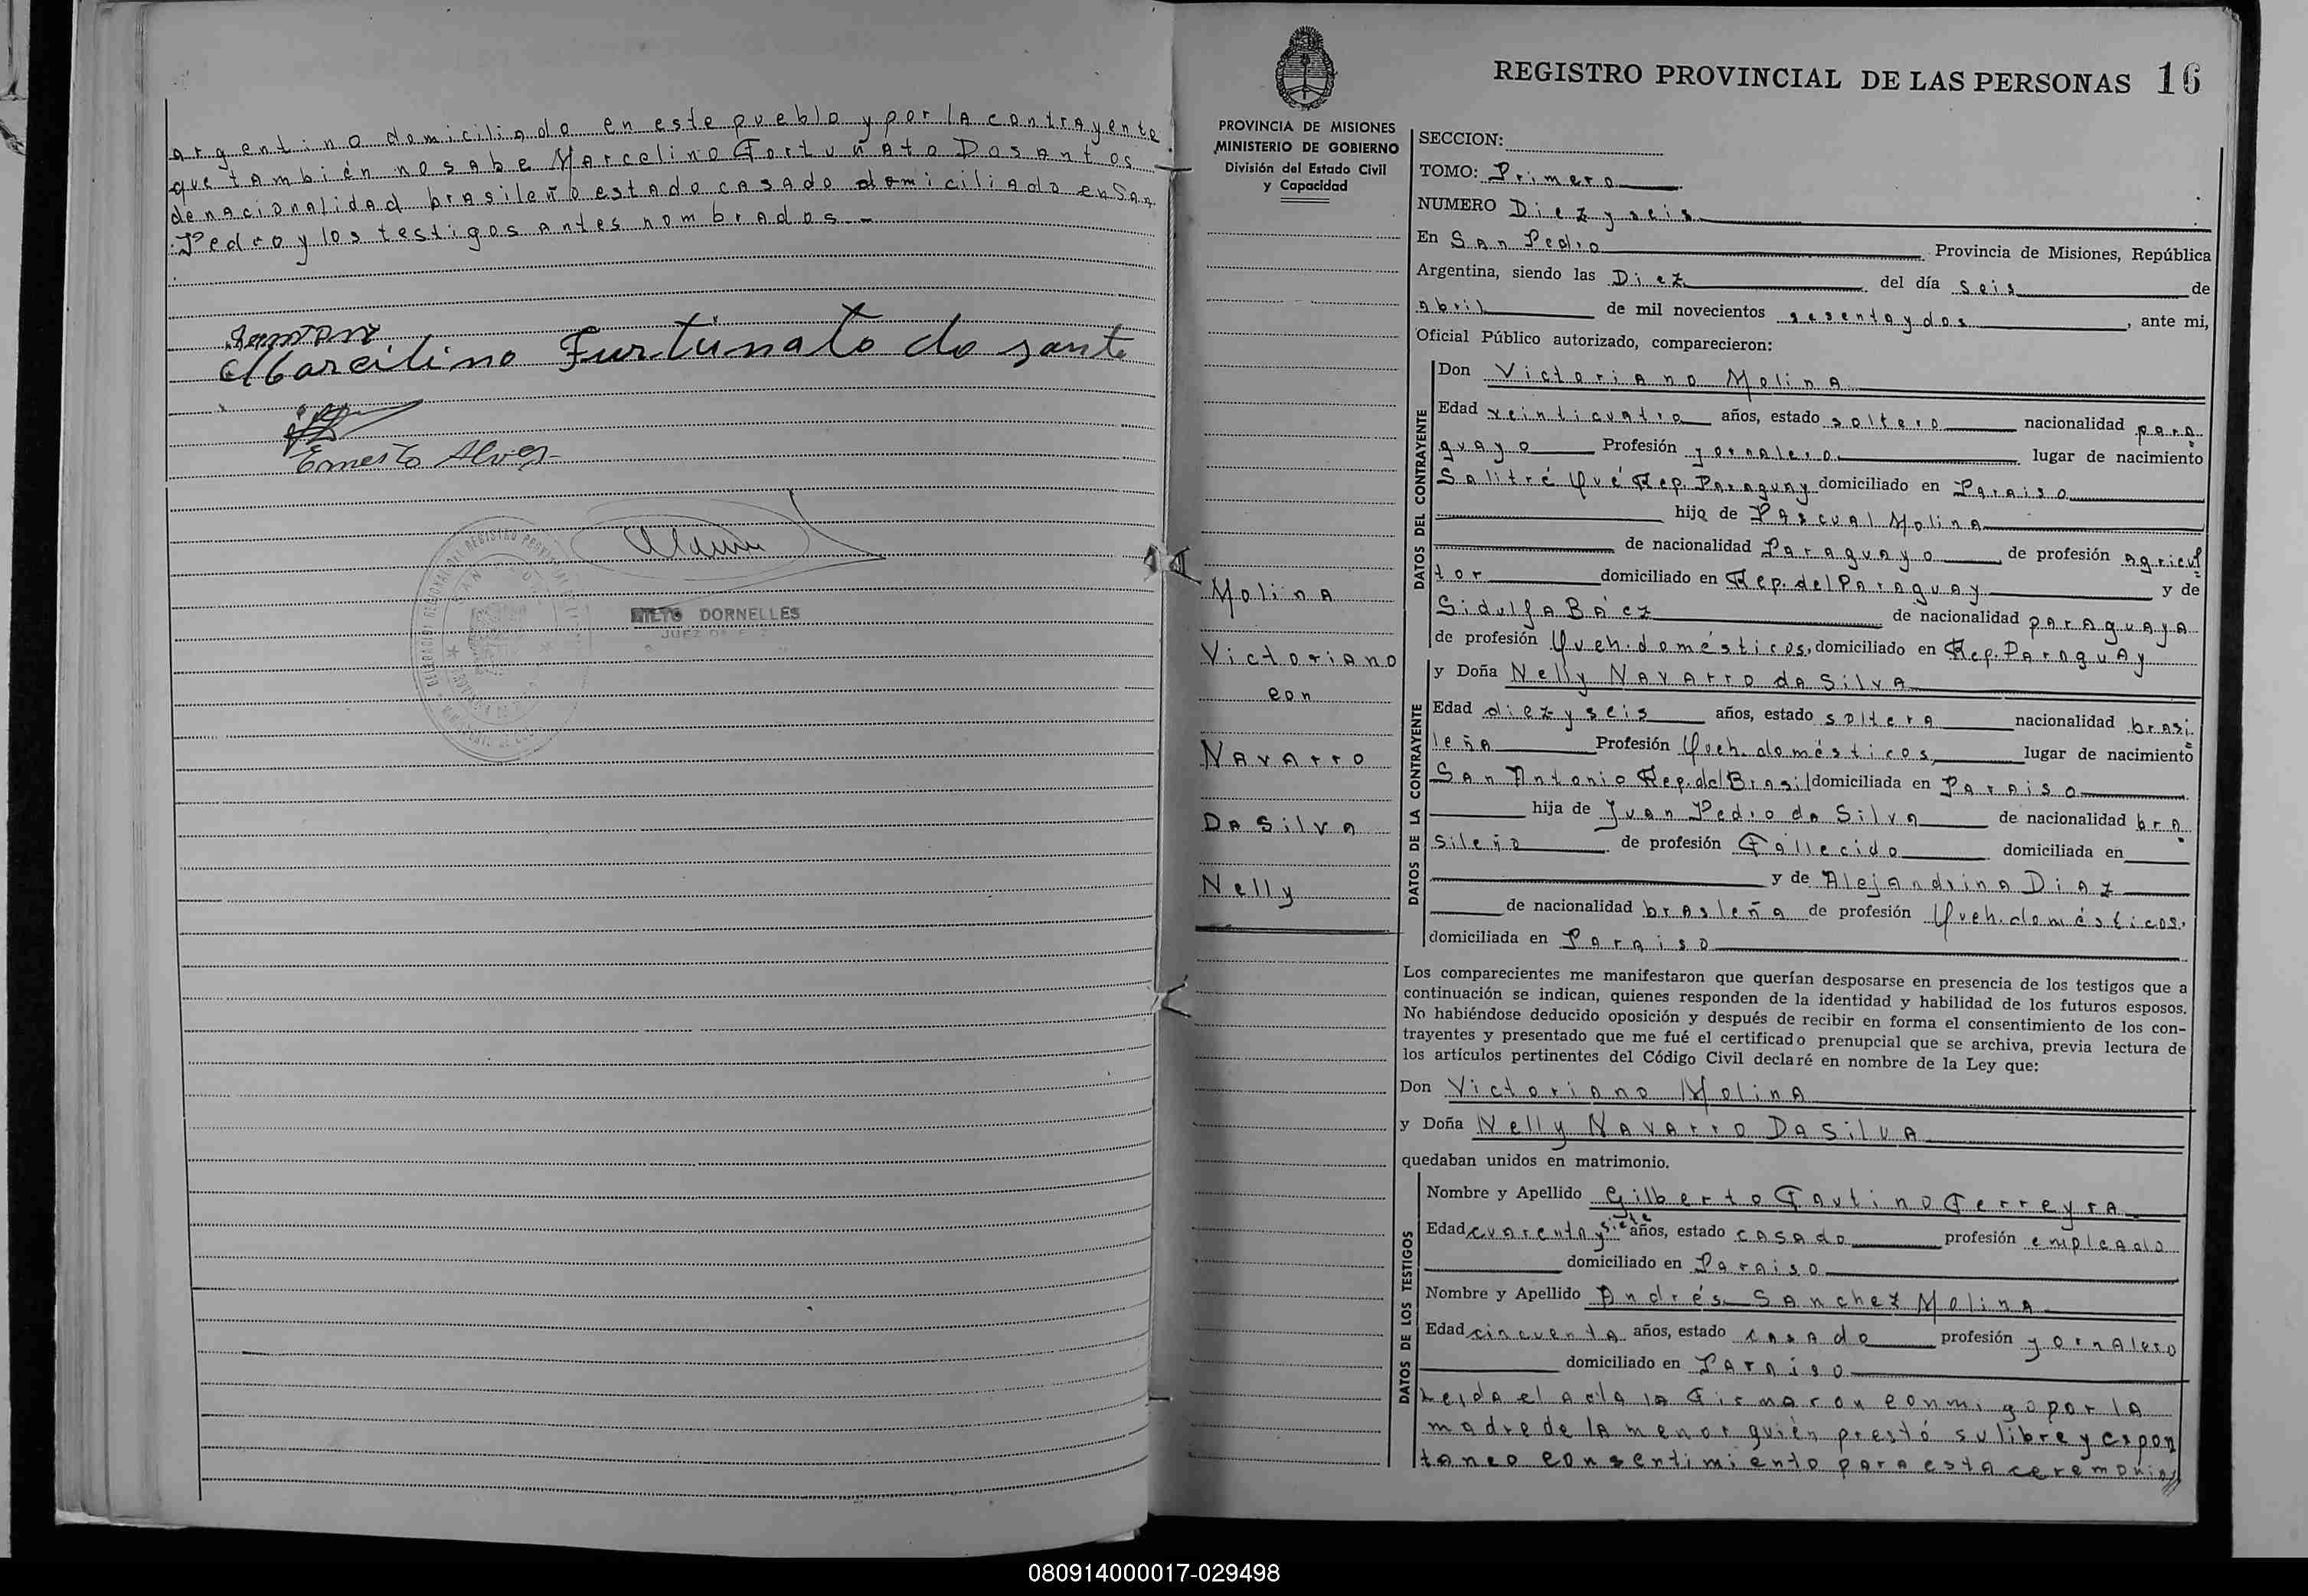 argentino domiciliado en este pueblo y por la contrayente
que también no sabe Marcelino Fortuñato Dosantos
de nacionalidad brasileño estado casado domiciliado en San
Pedro y los testigos antes nombrados.-
Marcilino Furtunato do santo
Ernesto Alves
DORNELLES
JUEZ DE PAZ
REGISTRO PROVINCIAL DE LAS PERSONAS 16
PROVINCIA DE MISIONES
MINISTERIO DE GOBIERNO
División del Estado Civil
y Capacidad
Molina
Victoriano
con
Navarro
Da Silva
Nelly
SECCION:
TOMO: Primero
NUMERO Diez y seis
En San Pedro Provincia de Misiones, República
Argentina, siendo las Diez del día seis de
abril de mil novecientos sesenta y dos, ante mi,
Oficial Público autorizado, comparecieron:
DATOS DEL CONTRAYENTE
Don Victoriano Molina
Edad veinticuatro años, estado soltero nacionalidad para
guayo Profesión yornalero lugar de nacimiento
Salitré Qué Rep. Paraguay domiciliado en Paraiso
hijo de Pascual Molina
de nacionalidad Paraguayo de profesión agricul
tor domiciliado en Rep. del Paraguay y de
Sidulfa Báez de nacionalidad paraguaya
de profesión Queh. domésticos, domiciliado en Rep. Paraguay
DATOS DE LA CONTRAYENTE
y Doña Nelly Navarro da Silva
Edad diez y seis años, estado soltera nacionalidad brasi
leña Profesión Queh. domésticos, lugar de nacimiento
San Antonio Rep. del Brasil domiciliada en Paraiso
hija de Juan Pedro da Silva de nacionalidad bra
sileño de profesión Fallecido domiciliada en
y de Alejandrina Diaz
de nacionalidad brasleña de profesión Queh. domésticos,
domiciliada en Paraiso
Los comparecientes me manifestaron que querían desposarse en presencia de los testigos que a
continuación se indican, quienes responden de la identidad y habilidad de los futuros esposos.
No habiéndose deducido oposición y después de recibir en forma el consentimiento de los con-
trayentes y presentado que me fué el certificado prenupcial que se archiva, previa lectura de
los artículos pertinentes del Código Civil declaré en nombre de la Ley que:
Don Victoriano Molina
y Doña Nelly Navarro Da Silva
quedaban unidos en matrimonio.
DATOS DE LOS TESTIGOS
Nombre y Apellido Gilberto Fautino Ferreyra
Edad cuarenta y siete años, estado casado profesión empleado
domiciliado en Paraiso
Nombre y Apellido Andrés Sanchez Molina
Edad cincuenta años, estado casado profesión yornalero
domiciliado en Paraiso
Leida el acta la Firmaron conmigo por la
madre de la menor quién prestó su libre y espon
taneo consentimiento para esta ceremonia
080914000017-029498